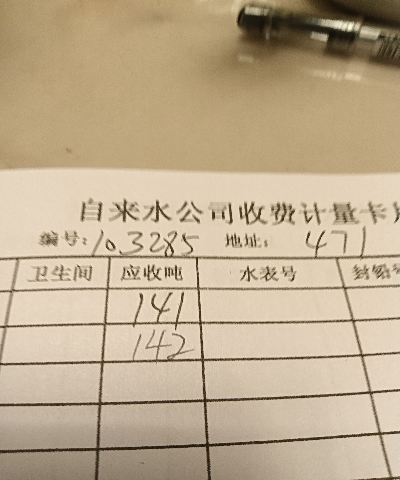 自来水公司收费计量卡
编号:103285 地址: 471
卫生间 应收吨 水表号 封铅
141
142